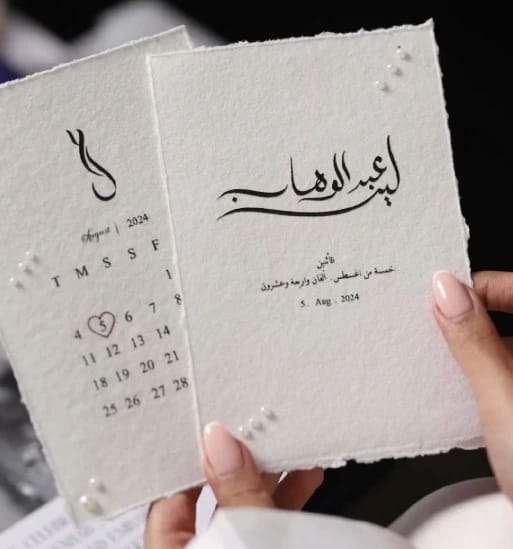 August | 2024
T M S S F
1
4 5 6 7 8
11 12 13 14
18 19 20 21
25 26 27 28
عبدالوهاب
الأثنين
خمسة من اغسطس, ألفان واربعة وعشرون
5 . Aug . 2024